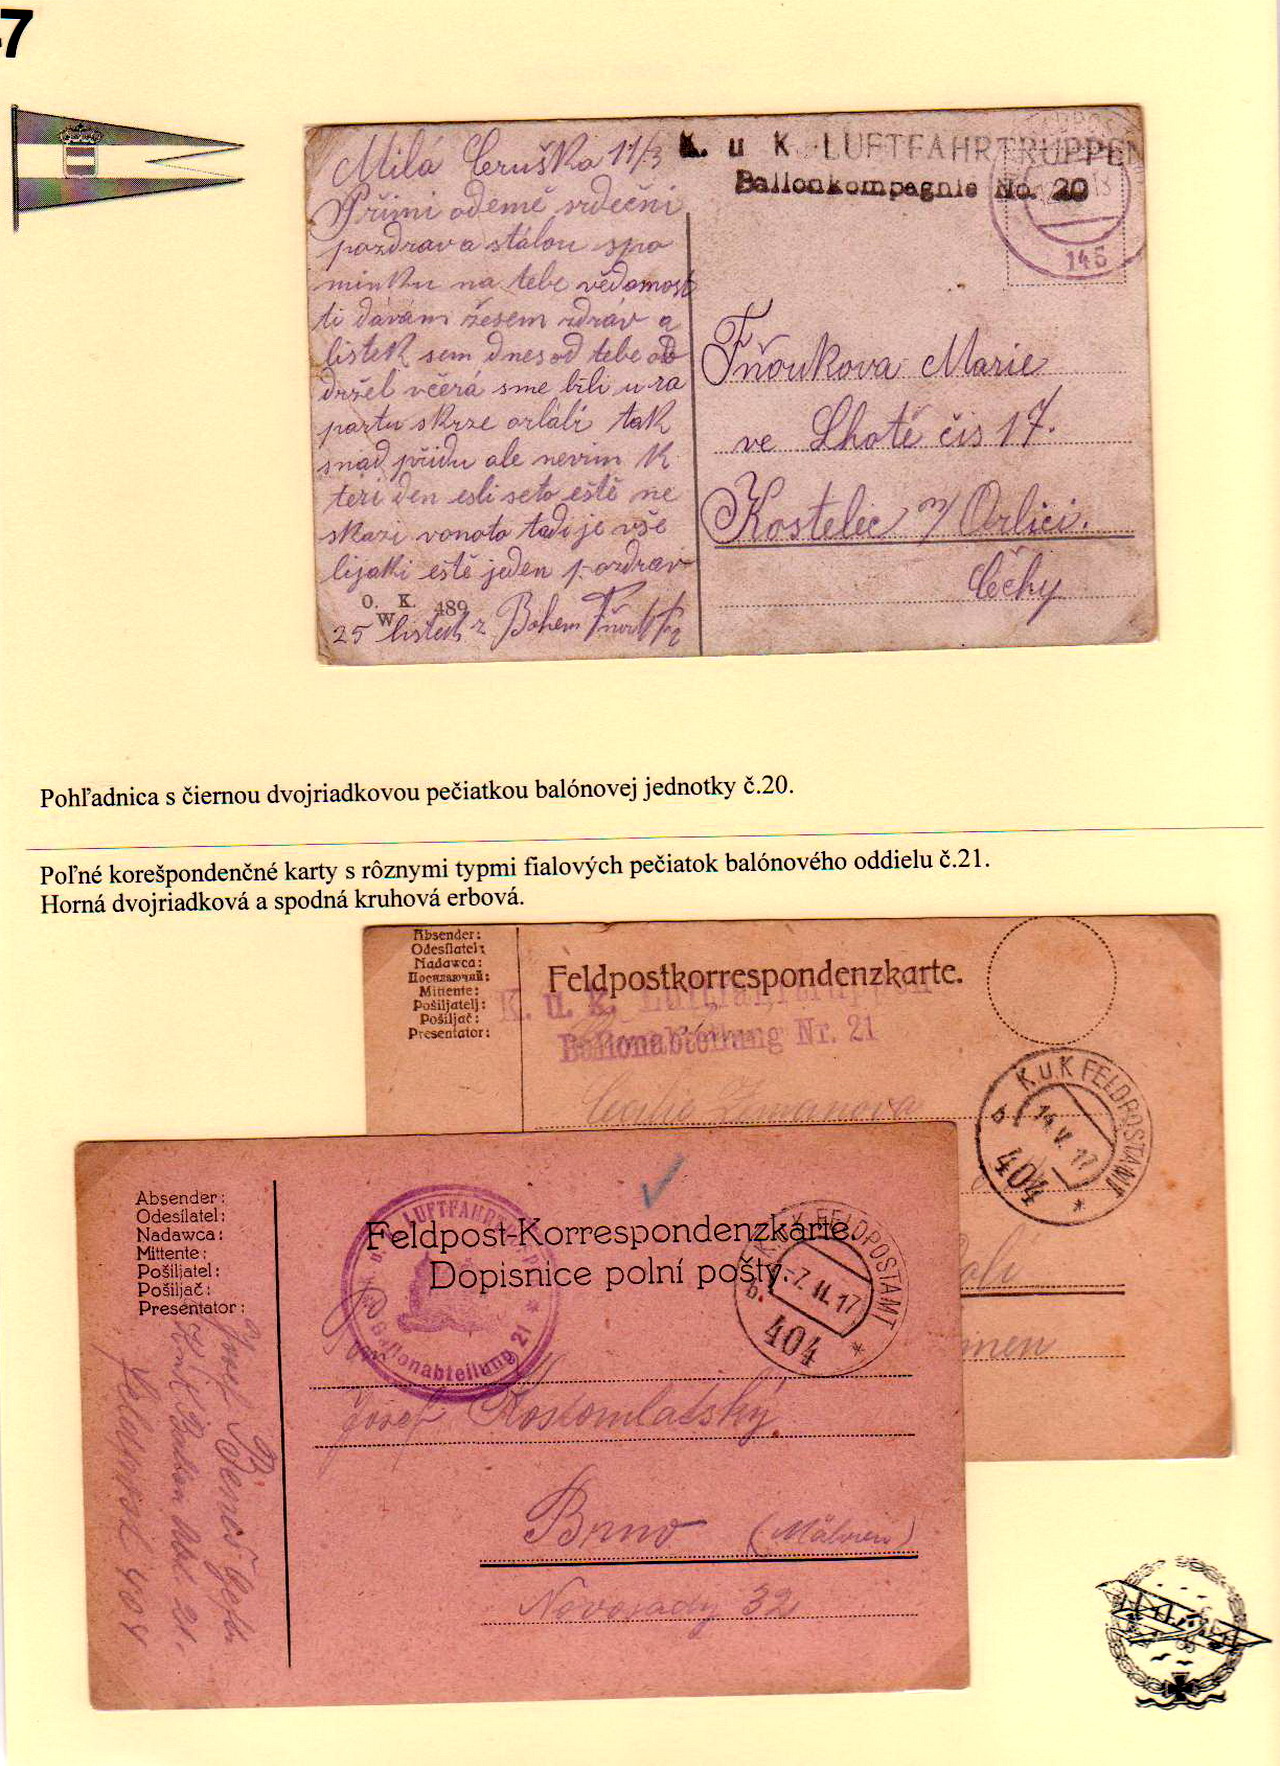 7
Milá Ceruška 11/3
Přimi odemě srdečni
pozdrav a stálou spo
minku na tebe vědomost
ti dávám žesem zdráv a
listek sem dnes od tebe ob
držel včerá sme bili u ra
partu skrze orláb tak
snad přídu ale nevim k
téri den esli seto eště ne
skazi vonoto tadi je vše
lijaki eště jeden pozdrav
O. K.
W. 489
25 listek z Bohem
K. u K. LUFTFAHRTRUPPEN
Ballonkompagnie No. 20
145
Fňoukova Marie
ve Lhotě čis 17.
Kostelec n/ Orlici.
Čěhy
Pohľadnica s čiernou dvojriadkovou pečiatkou balónovej jednotky č.20.
Poľné korešpondenčné karty s rôznymi typmi fialových pečiatok balónového oddielu č.21.
Horná dvojriadková a spodná kruhová erbová.
Absender:
Odesílatel:
Nadawca:
Посилаючий:
Mittente:
Pošiljatelj:
Pošiljač:
Presentator:
Feldpostkorrespondenzkarte.
K. u. k. Luftfahrtruppen
Ballonabteilung Nr. 21
Cecilie Zemanova
K.u.K FELDPOSTAMT
b
14.V.17
404
*
Absender:
Odesílatel:
Nadawca:
Mittente:
Pošiljatel:
Pošiljač:
Presentator:
Feldpost-Korrespondenzkarte.
Dopisnice polní pošty.
Ballonabteilung 21
K.u.K FELDPOSTAMT
b.
-7.II.17
404
*
Pan
Josef Kostomlatský.
Brno (Mähren)
Novosady 32
Josef Beneš
K.u.K Ballon Abt 21.
Feldpost 404